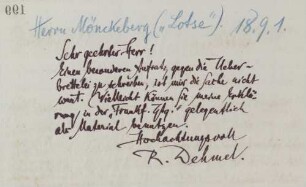 001
Herrn Mönckeberg („Lotse“). 18.9.1.
Sehr geehrter Herr!
Einen besonderen Aufsatz gegen die Ueber-
brettelei zu schreiben, ist mir die Sache nicht
wert. Vielleicht können Sie meine Erklä-
rung in der „Frankf. Ztg.“ gelegentlich
als Material benutzen.
Hochachtungsvoll
R. Dehmel.